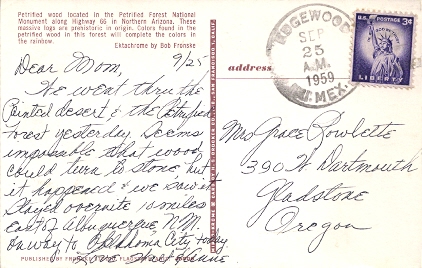 Petrified wood located in the Petrified Forest National
Monument along Highway 66 in Northern Arizona. These
massive logs are prehistoric in origin. Colors found in the
petrified wood in this forest will complete the colors in
the rainbow.
Ektachrome by Bob Fronske
9/25
Dear Mom,
We went thru the
Painted desert, & the Petrified
forest yesterday. Seems
impossible that wood
could turn to stone, but
it happened & we saw it
Stayed overnite 10 miles
east of Albuquerque N.M.
on way to Oklahoma City today
Love
address
EDGEWOOD
SEP
25
A.M.
1959
N. MEX.
U.S. POSTAGE
3¢
LIBERTY
Mrs Grace Rowlette
390 W. Dartmouth
Gladstone
Oregon